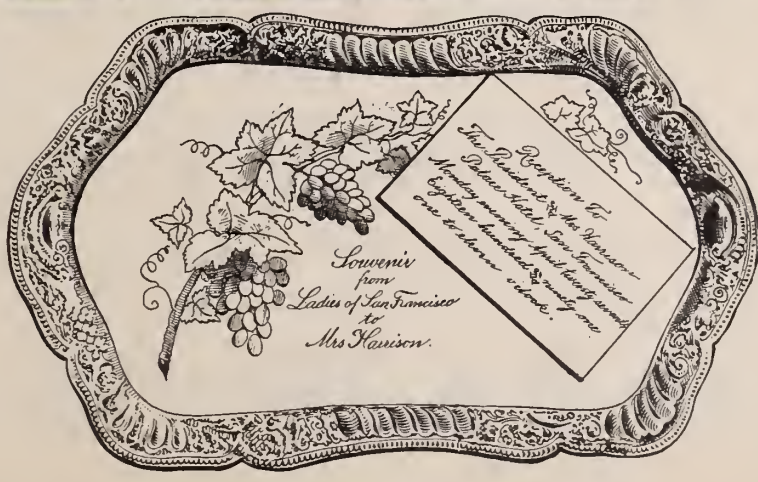 Souvenir
from
Ladies of San Francisco
to
Mrs Harrison.
Reception To
The President & Mrs Harrison
Palace Hotel, San Francisco
Monday evening April twenty seventh
Eighteen hundred & ninety one.
to eleven o'clock.